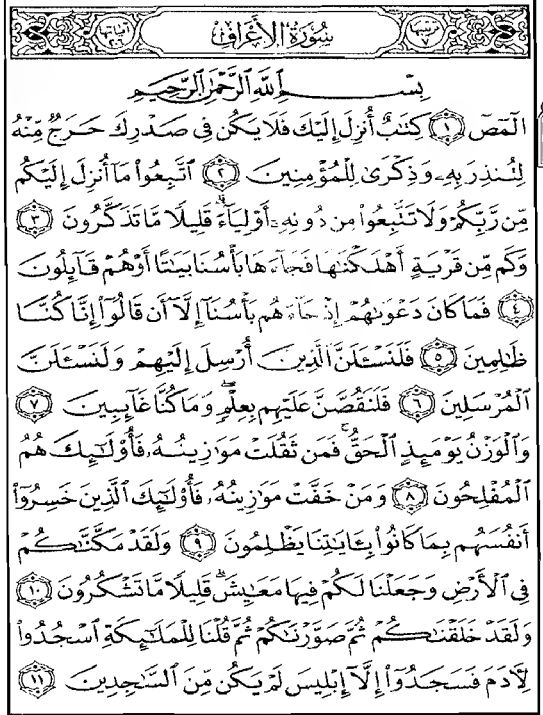 ترتيبها ٧ سُورَةُ الأَعْرَافِ آياتها ٢٠٦
بِسْمِ ٱللَّهِ ٱلرَّحْمَٰنِ ٱلرَّحِيمِ
الٓمٓصٓ ١ كِتَٰبٌ أُنزِلَ إِلَيْكَ فَلَا يَكُن فِى صَدْرِكَ حَرَجٌ مِّنْهُ
لِتُنذِرَ بِهِۦ وَذِكْرَىٰ لِلْمُؤْمِنِينَ ٢ ٱتَّبِعُوا۟ مَآ أُنزِلَ إِلَيْكُم
مِّن رَّبِّكُمْ وَلَا تَتَّبِعُوا۟ مِن دُونِهِۦٓ أَوْلِيَآءَ ۗ قَلِيلًا مَّا تَذَكَّرُونَ ٣
وَكَم مِّن قَرْيَةٍ أَهْلَكْنَٰهَا فَجَآءَهَا بَأْسُنَا بَيَٰتًا أَوْ هُمْ قَآئِلُونَ
٤ فَمَا كَانَ دَعْوَىٰهُمْ إِذْ جَآءَهُم بَأْسُنَآ إِلَّآ أَن قَالُوٓا۟ إِنَّا كُنَّا
ظَٰلِمِينَ ٥ فَلَنَسْـَٔلَنَّ ٱلَّذِينَ أُرْسِلَ إِلَيْهِمْ وَلَنَسْـَٔلَنَّ
ٱلْمُرْسَلِينَ ٦ فَلَنَقُصَّنَّ عَلَيْهِم بِعِلْمٍ ۖ وَمَا كُنَّا غَآئِبِينَ ٧
وَٱلْوَزْنُ يَوْمَئِذٍ ٱلْحَقُّ ۚ فَمَن ثَقُلَتْ مَوَٰزِينُهُۥ فَأُو۟لَٰٓئِكَ هُمُ
ٱلْمُفْلِحُونَ ٨ وَمَنْ خَفَّتْ مَوَٰزِينُهُۥ فَأُو۟لَٰٓئِكَ ٱلَّذِينَ خَسِرُوٓا۟
أَنفُسَهُم بِمَا كَانُوا۟ بِـَٔايَٰتِنَا يَظْلِمُونَ ٩ وَلَقَدْ مَكَّنَّٰكُمْ
فِى ٱلْأَرْضِ وَجَعَلْنَا لَكُمْ فِيهَا مَعَٰيِشَ ۗ قَلِيلًا مَّا تَشْكُرُونَ ١٠
وَلَقَدْ خَلَقْنَٰكُمْ ثُمَّ صَوَّرْنَٰكُمْ ثُمَّ قُلْنَا لِلْمَلَٰٓئِكَةِ ٱسْجُدُوا۟
لِـَٔادَمَ فَسَجَدُوٓا۟ إِلَّآ إِبْلِيسَ لَمْ يَكُن مِّنَ ٱلسَّٰجِدِينَ ١١